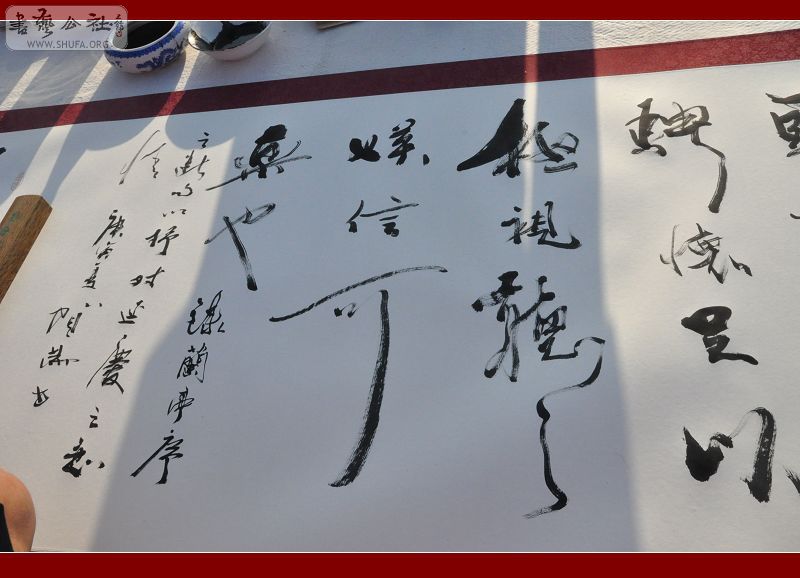 書藝公社
WWW.SHUFA.ORG
騁懷足以
極視聽之
娛信可
樂也
錄蘭亭序
之斷句以抒時延慶之意
庚寅夏
書